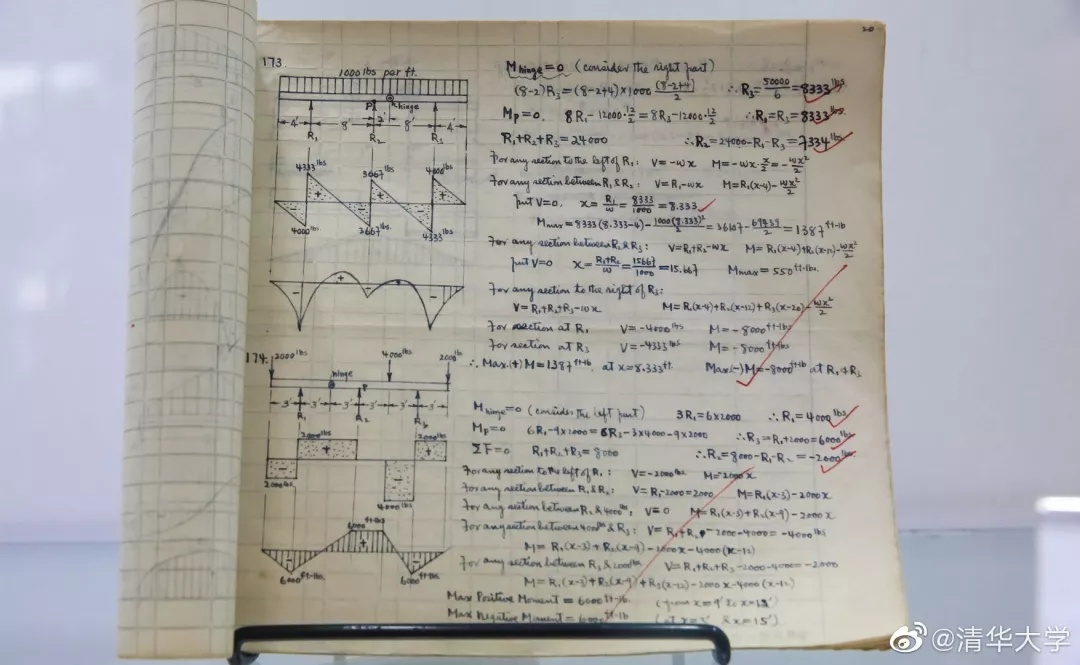 20
173.
1000 lbs per ft.
hinge
P
4' 8' 2' 8' 4'
R₁ R₂ R₃
4333 lbs 3667 lbs 4000 lbs
+ + +
4000 lbs 3667 lbs 4333 lbs
− + −
M hinge = 0 (consider the right part)
(8-2)R₃ = (8-2+4)×1000 (8-2+4)/2 ∴ R₃ = 50000/6 = 8333 lbs
Mp = 0. 8R₁ - 12000·12/2 = 8R₃ - 12000·12/2 ∴ R₁ = R₃ = 8333 lbs.
R₁+R₂+R₃ = 24000 ∴ R₂ = 24000-R₁-R₃ = 7334 lbs.
For any section to the left of R₁: V = -wx M = -wx·x/2 = -wx²/2
For any section between R₁ & R₂: V = R₁-wx M = R₁(x-4) - wx²/2
put V=0. x = R₁/w = 8333/1000 = 8.333
Mmax = 8333(8.333-4) - 1000(8.333)²/2 = 36107 - 69439/2 = 1387 ft-lb
For any section between R₂ & R₃: V = R₁+R₂-wx M = R₁(x-4)+R₂(x-12)-wx²/2
put V=0 x = R₁+R₂/w = 15667/1000 = 15.667 Mmax = 550 ft-lbs.
For any section to the right of R₃:
V = R₁+R₂+R₃-wx M = R₁(x-4)+R₂(x-12)+R₃(x-20)-wx²/2
For section at R₁ V = -4000 lbs M = -8000 ft-lbs
For section at R₃ V = -4333 lbs M = -8000 ft-lb
∴ Max.(+)M = 1387 ft-lb. at x = 8.333 ft. Max(-)M = -8000 ft-lb at R₁ & R₃
174.
2000 lbs 4000 lbs 2000 lb
hinge
P
3' 3' 3' 3' 3' 3'
R₁ R₂ R₃
2000 lbs 2000 lbs
+
−
2000 lbs 4000 lbs
6000 ft-lbs
+
− −
6000 ft-lbs. 6000 ft-lbs.
M hinge = 0 (consider the left part) 3R₁ = 6×2000 ∴ R₁ = 4000 lbs
Mp = 0 6R₁-9×2000 = 6R₃-3×4000-9×2000 ∴ R₃ = R₁+2000 = 6000 lbs
ΣF = 0 R₁+R₂+R₃ = 8000 ∴ R₂ = 8000-R₁-R₂ = -2000 lbs
For any section to the left of R₁: V = -2000 lbs. M = -2000x
For any section between R₁ & R₂: V = R₁-2000 = 2000 M = R₁(x-3)-2000x
For any section between R₂ & 4000 lbs, V = 0 M = R₁(x-3)+R₂(x-9)-2000x
For any section between 4000 lbs & R₃: V = R₁+R₂-2000-4000 = -4000 lbs
M = R₁(x-3)+R₂(x-9)-2000x-4000(x-12)
For any section between R₃ & 2000 lbs. V = R₁+R₂+R₃-2000-4000 = -2000
M = R₁(x-3)+R₂(x-9)+R₃(x-12)-2000x-4000(x-12)
Max Positive Moment = 6000 ft-lb. (from x=9' to x=12')
Max Negative Moment = 6000 ft-lb (at x=3' & x=15')
@清华大学